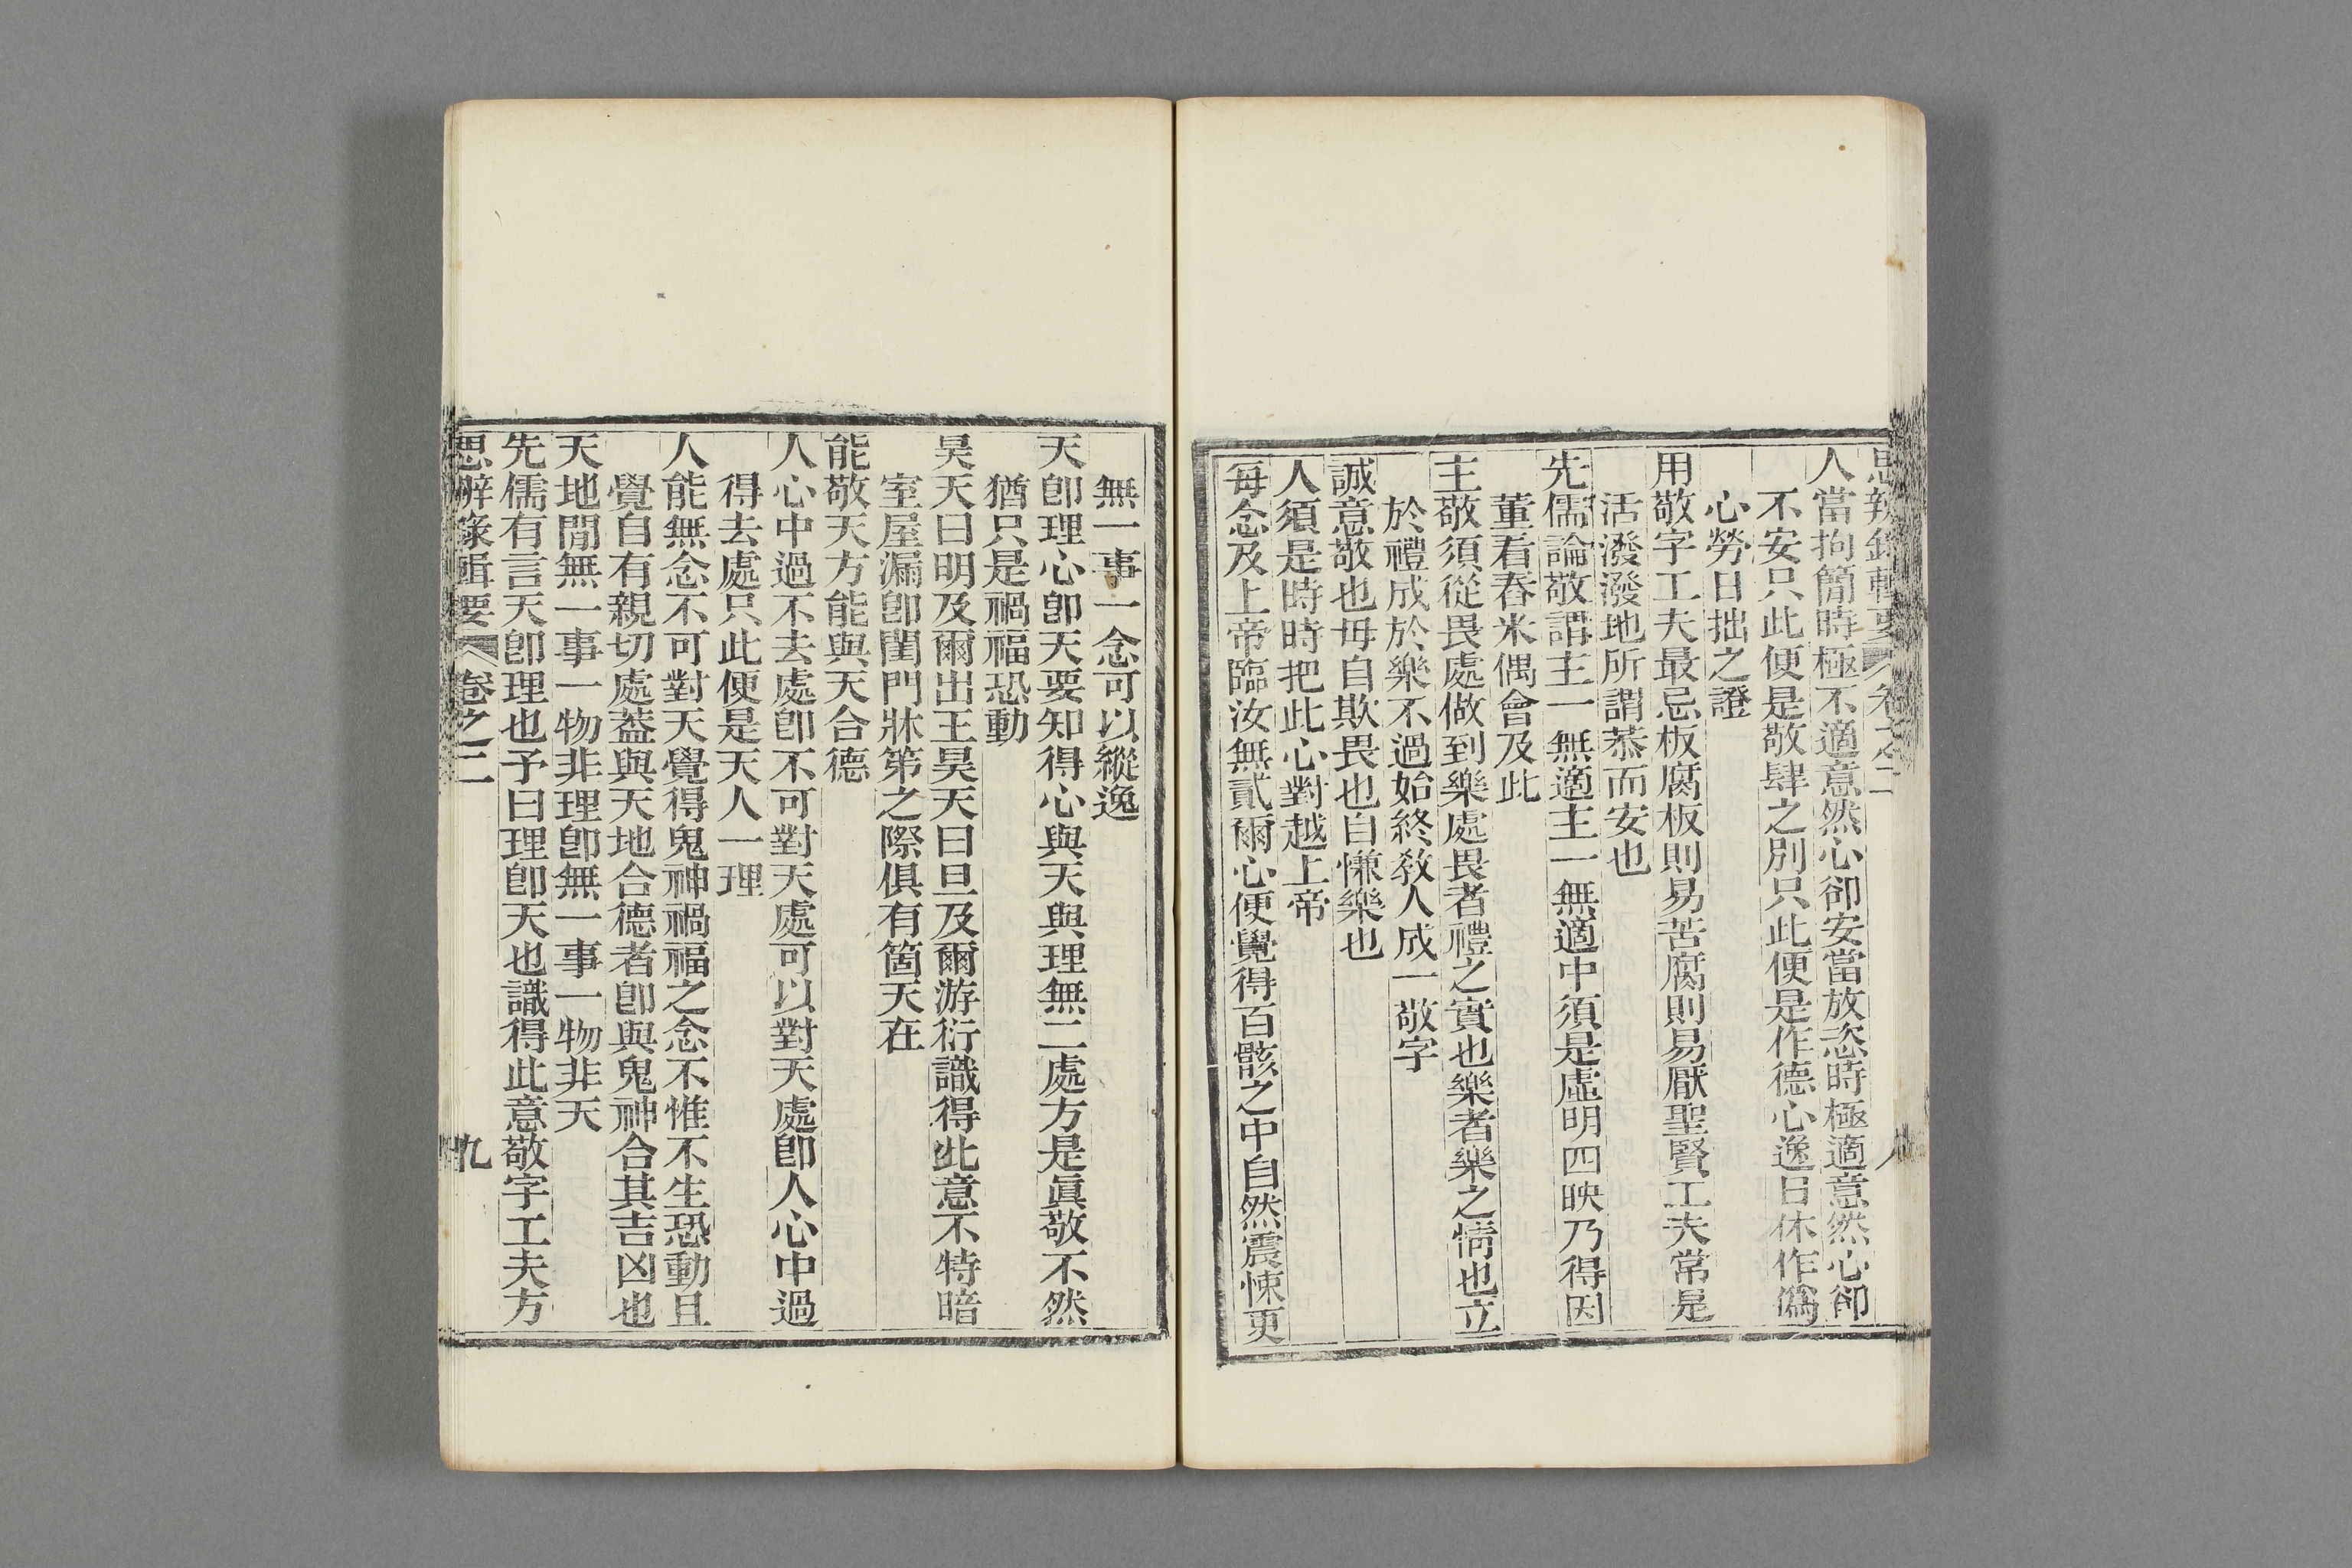 思辨錄輯要 卷之二 八
人當拘簡時極不適意然心卻安當放恣時極適意然心卻
不安只此便是敬肆之別只此便是作德心逸日休作僞
心勞日拙之證
用敬字工夫最忌板腐板則易苦腐則易厭聖賢工夫常是
活潑潑地所謂恭而安也
先儒論敬謂主一無適主一無適中須是虛明四映乃得因
董看舂米偶會及此
主敬須從畏處做到樂處畏者禮之實也樂者樂之情也立
於禮成於樂不過始終教人成一敬字
誠意敬也毋自欺畏也自慊樂也
人須是時時把此心對越上帝
每念及上帝臨汝無貳爾心便覺得百骸之中自然震悚更
無一事一念可以縱逸
天卽理心卽天要知得心與天與理無二處方是眞敬不然
猶只是禍福恐動
昊天曰明及爾出王昊天曰旦及爾游衍識得此意不特暗
室屋漏卽閨門牀第之際俱有箇天在
能敬天方能與天合德
人心中過不去處卽不可對天處可以對天處卽人心中過
得去處只此便是天人一理
人能無念不可對天覺得鬼神禍福之念不惟不生恐動且
覺自有親切處葢與天地合德者卽與鬼神合其吉凶也
天地閒無一事一物非理卽無一事一物非天
先儒有言天卽理也予曰理卽天也識得此意敬字工夫方
思辨錄輯要 卷之二 九